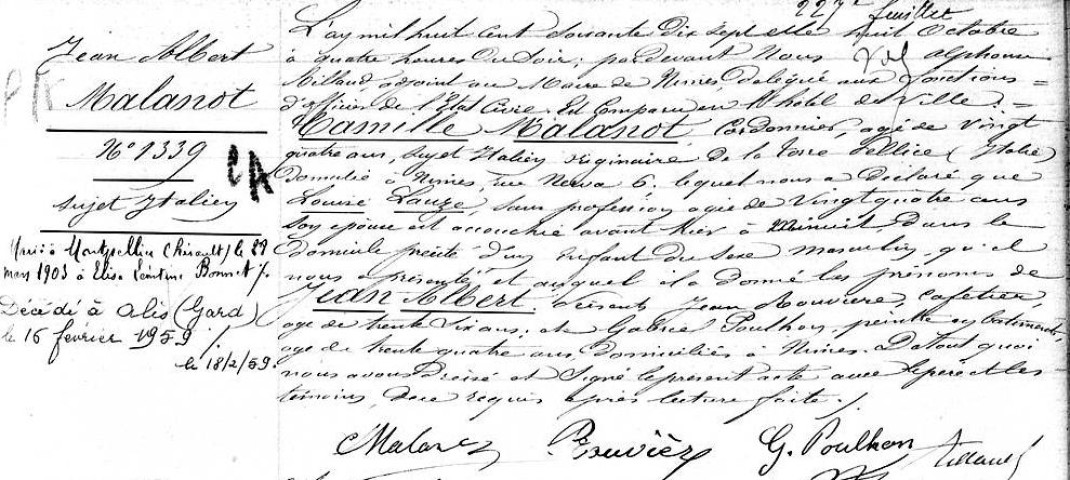 Jean Albert
Malanot
N° 1339
sujet Italien
Marié à Montpellier (Hérault) le 28
mars 1903 à Elisa Léontine Bonnet /.
Décédé à Alès (Gard)
le 16 février 1959 /.
le 18/2/59.
CA
L'an mil huit cent soixante dix sept et le huit Octobre
à quatre heures du soir; pardevant Nous Alphonse
Tillaud, adjoint au Maire de Nimes, délégué aux fonctions
d'officier de l'Etat Civil. Est Comparu en l'hôtel de Ville.
Camille Malanot, Cordonnier, agé de vingt
quatre ans, sujet Italien originaire de la Torre Pellice (Italie)
domicilié à Nimes, rue Nerva 6. lequel nous a déclaré que
Louise Lauze, sans profession agée de Vingt quatre ans
son épouse est accouchée avant hier à Minuit, Dans le
domicile précité d'un enfant du sexe masculin, qu'il
nous a présenté et auquel il a donné les prénoms de
Jean Albert. Présents Jean Rouvière, Cafetier,
agé de trente six ans, et Gabriel Poulhon, peintre en batiments,
agé de trente quatre ans, domiciliés à Nimes. De tout quoi
nous avons dressé et signé le présent acte avec le père et les
témoins, de ce requis après lecture faite /.
CMalanot Rouvière G. Poulhon Tillaud